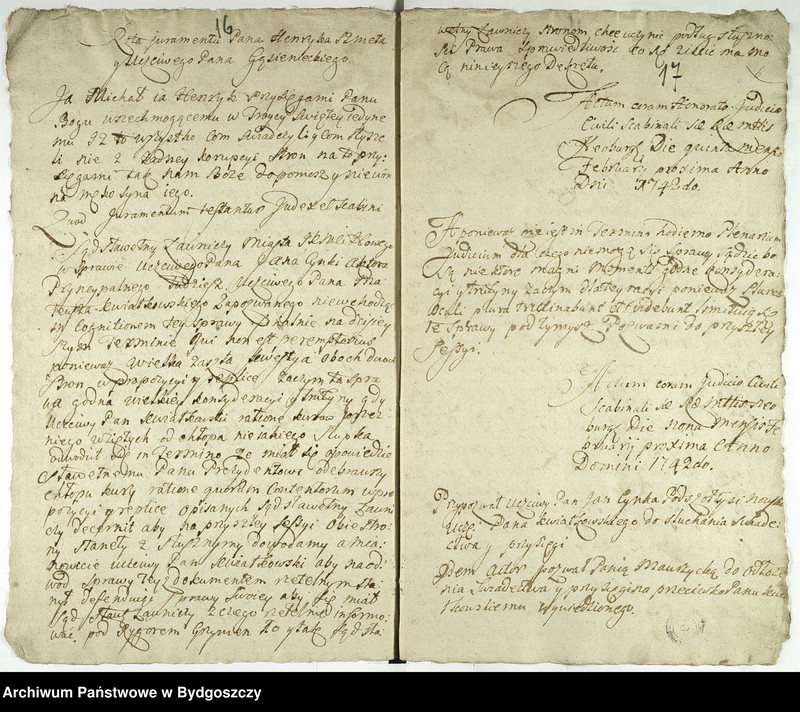 16
Rota juramentu Pana Henryka Szmeta
y Uczciwego Pana Gąsienieckiego
Ja Michał ia Henryk przysięgami Panu
Bogu wszechmogącemu w Troycy Swiętey Jedyne
mu Iż to wszystko com swiadczyli y com słysze
li nie z żadney korrupcyi stron na to przy:
sięgami tak nam Boże dopomoszy niewin
na męko syna iego.
Quod juramentum testantur Judex et Scabini
Sąd Sławetny Ławniczy Miasta
w sprawie Uczciwego Pana Jana Cynki Aktora
Pryncypalnego tudziesz Uczciwego Pana Ma
teusza Kwiatkowskiego Zapozwanego niewchodząc
in Cognitionem tey sprawy
Terminie qui non est peremptorius
poniewaz wielka zaszła kwestya oboch dwoch
stron w propozycyi y replice zaczym ta spra
wa godna wielkiey konsyderacyi y trutyny gdy
Uczciwy Pan Kwiatkowski ratione kurow przez
niego wziętych od chłopa nieiakiego Słupka
dowodził się in Termino że miał się opowiedzic
Sławetnemu Panu Prezydentowi odebrawszy
chłopu kury ratione quorum Contentorum w pro
pozycyi y replice opisanych Sąd Sławetny Ławni
czy decernit aby na przyszłey sessyi obie stro:
ny staneły z słusznymi dowodamy a mia:
nowicie Uczciwy Pan Kwiatkowski aby na od
wod sprawy tey dokumentem rzetelnym sta:
nął defendując sprawy swoiey aby się miał
Sąd Sławet: Ławniczy z czego rzetelnie informo:
wac. pod Rygorem Grzywien to y tak Sąd Sła:
wetny Ławniczy stronom chce uczynic podług słuszno:
sci Prawa sprawiedliwosc co się ziscic ma mo
cą ninieyszego Dekretu.
17
Actum coram Honorato Judicio
Civili Scabinali
Die quinta mensis
Februarij proxima Anno
Dni 1742do.
A poniewaz nie jest in Termino hodierno Plenarium
Judicium dla czego nie mogą się sprawy sądzic bo
są niektore magni momenti godne konsydera:
cyi y trutyny zaczym dla tey racyi poniewaz Plures
Oculi plura
te sprawy pod tymysz Pozwami do przyszłey
sessyi.
Actum coram Judicio Civili
Scabinali
burg: Die nona Mensis Fe
bruarij proxima Anno
Domini 1742do.
Przypozwał Uczciwy Pan Jan Cynka
Ucz: Pana Kwiatkowskiego do słuchania swiade:
ctwa y przysięgi
Idem actor pozwał Panią Mauryckę do odda:
nia swiadectwa y przysięgi przeciwko Panu Kwia
tkowskiemu
Archiwum Państwowe w Bydgoszczy